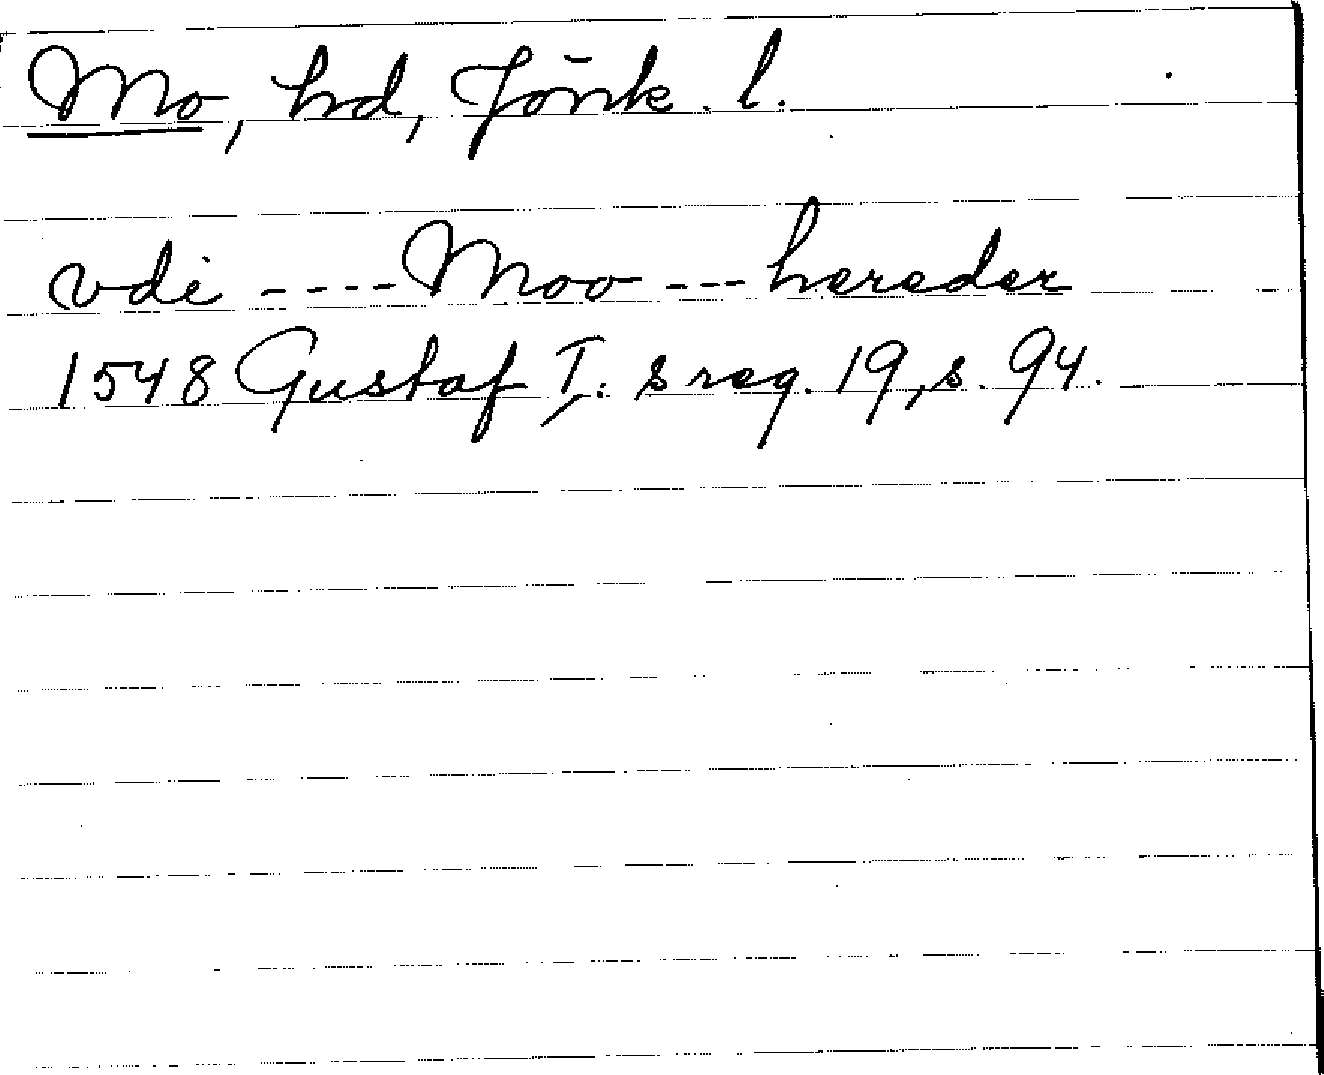 Mo, hd, Jönk. l.
vdi ---- Moo --- hereder
1548 Gustaf I:s reg. 19, s. 94.